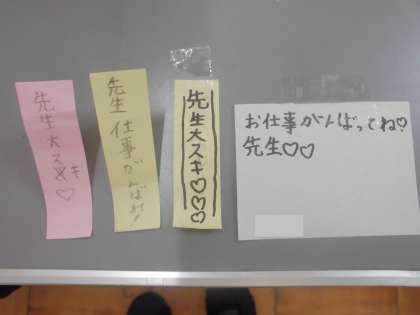 先生大スキ♡
先生仕事がんばれ!
先生大スキ♡♡♡
お仕事がんばってね♡
先生♡♡